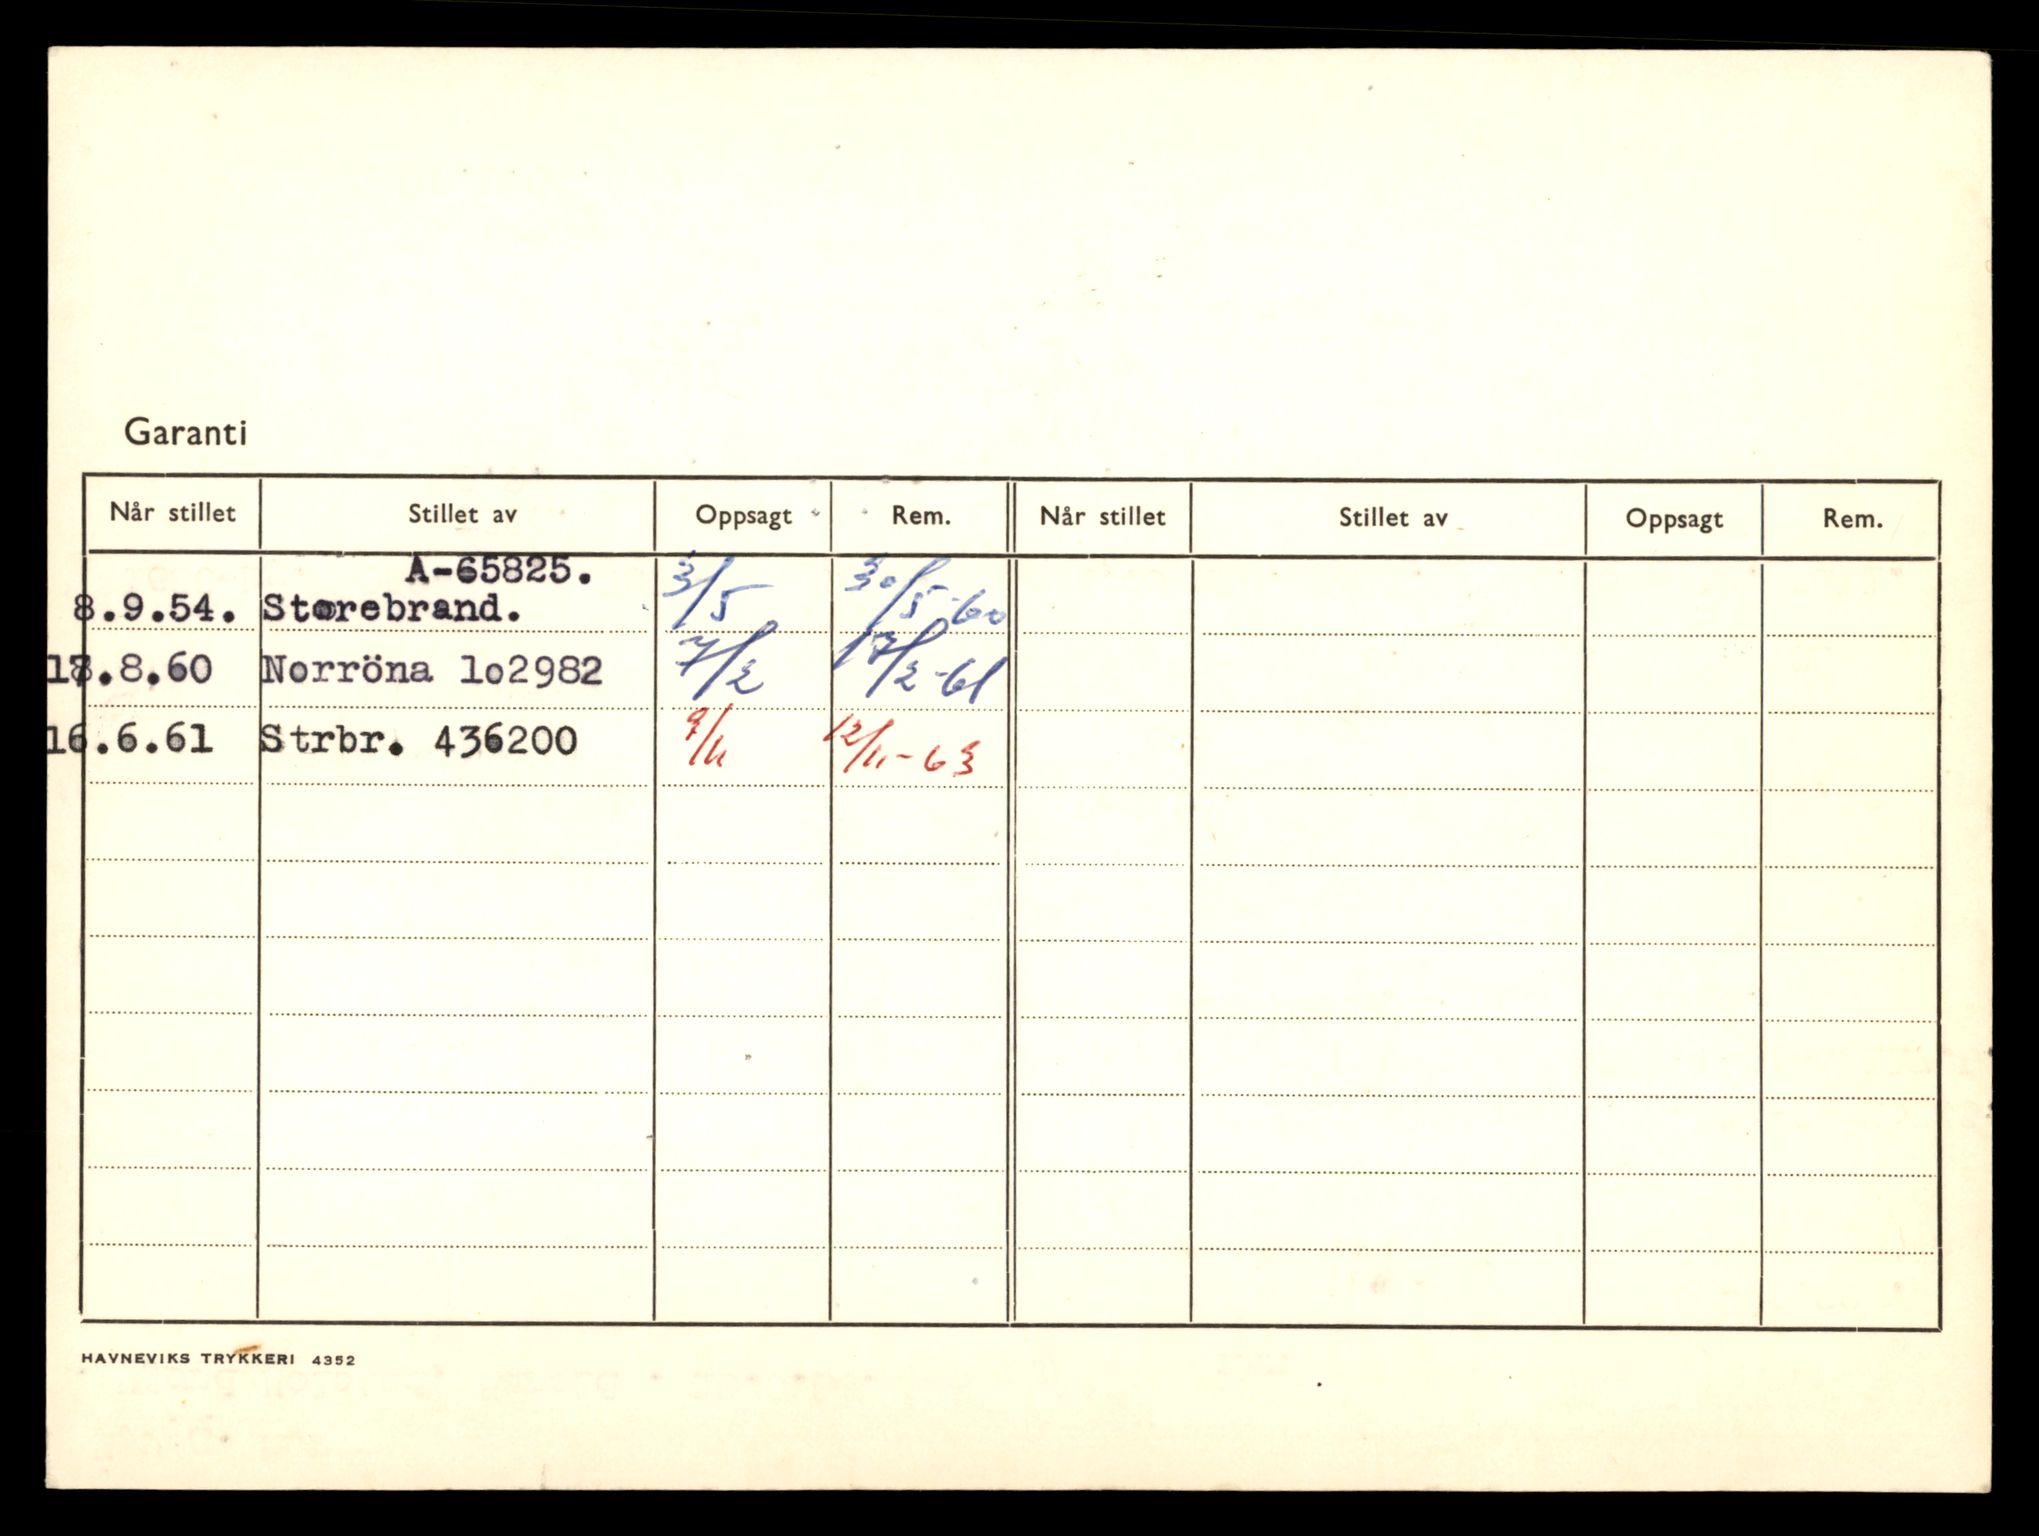 Garanti
Når stillet Stillet av Oppsagt Rem. Når stillet Stillet av Oppsagt Rem.
A-65825.
8.9.54. Storebrand. 3/5 30/5-60
.8.60 Norröna lo2982 7/2 17/2-61
16.6.61 Strbr. 436200 9/11 12/11-63
HAVNEVIKS TRYKKERI 4352